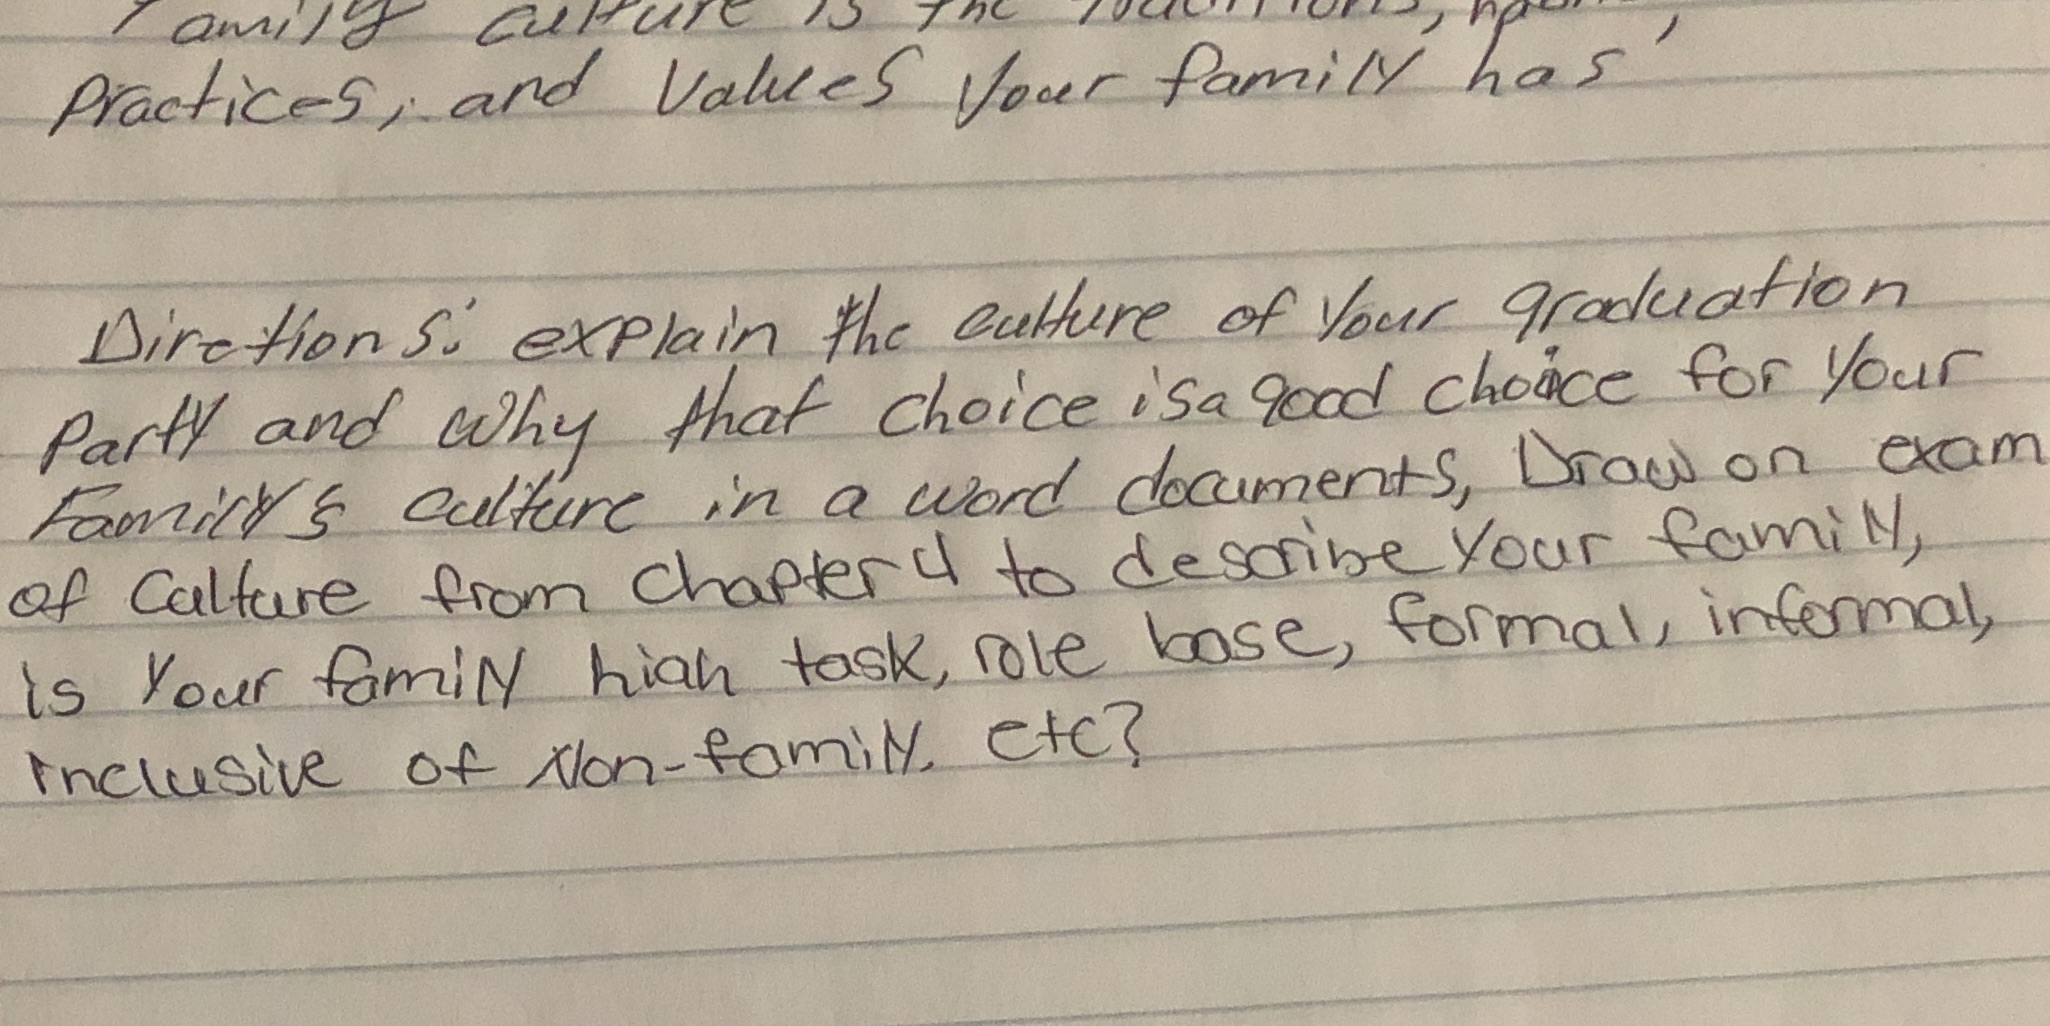 Family culture is the traditions,
Practices, and Values Your family has
Directions: explain the culture of Your graduation
Party and Why that choice is a good choice for Your
Family's culture in a word documents, Draw on exam
of Culture from Chapter 4 to describe Your family,
is Your family high task, role base, formal, informal,
Inclusive of Non-family. etc?